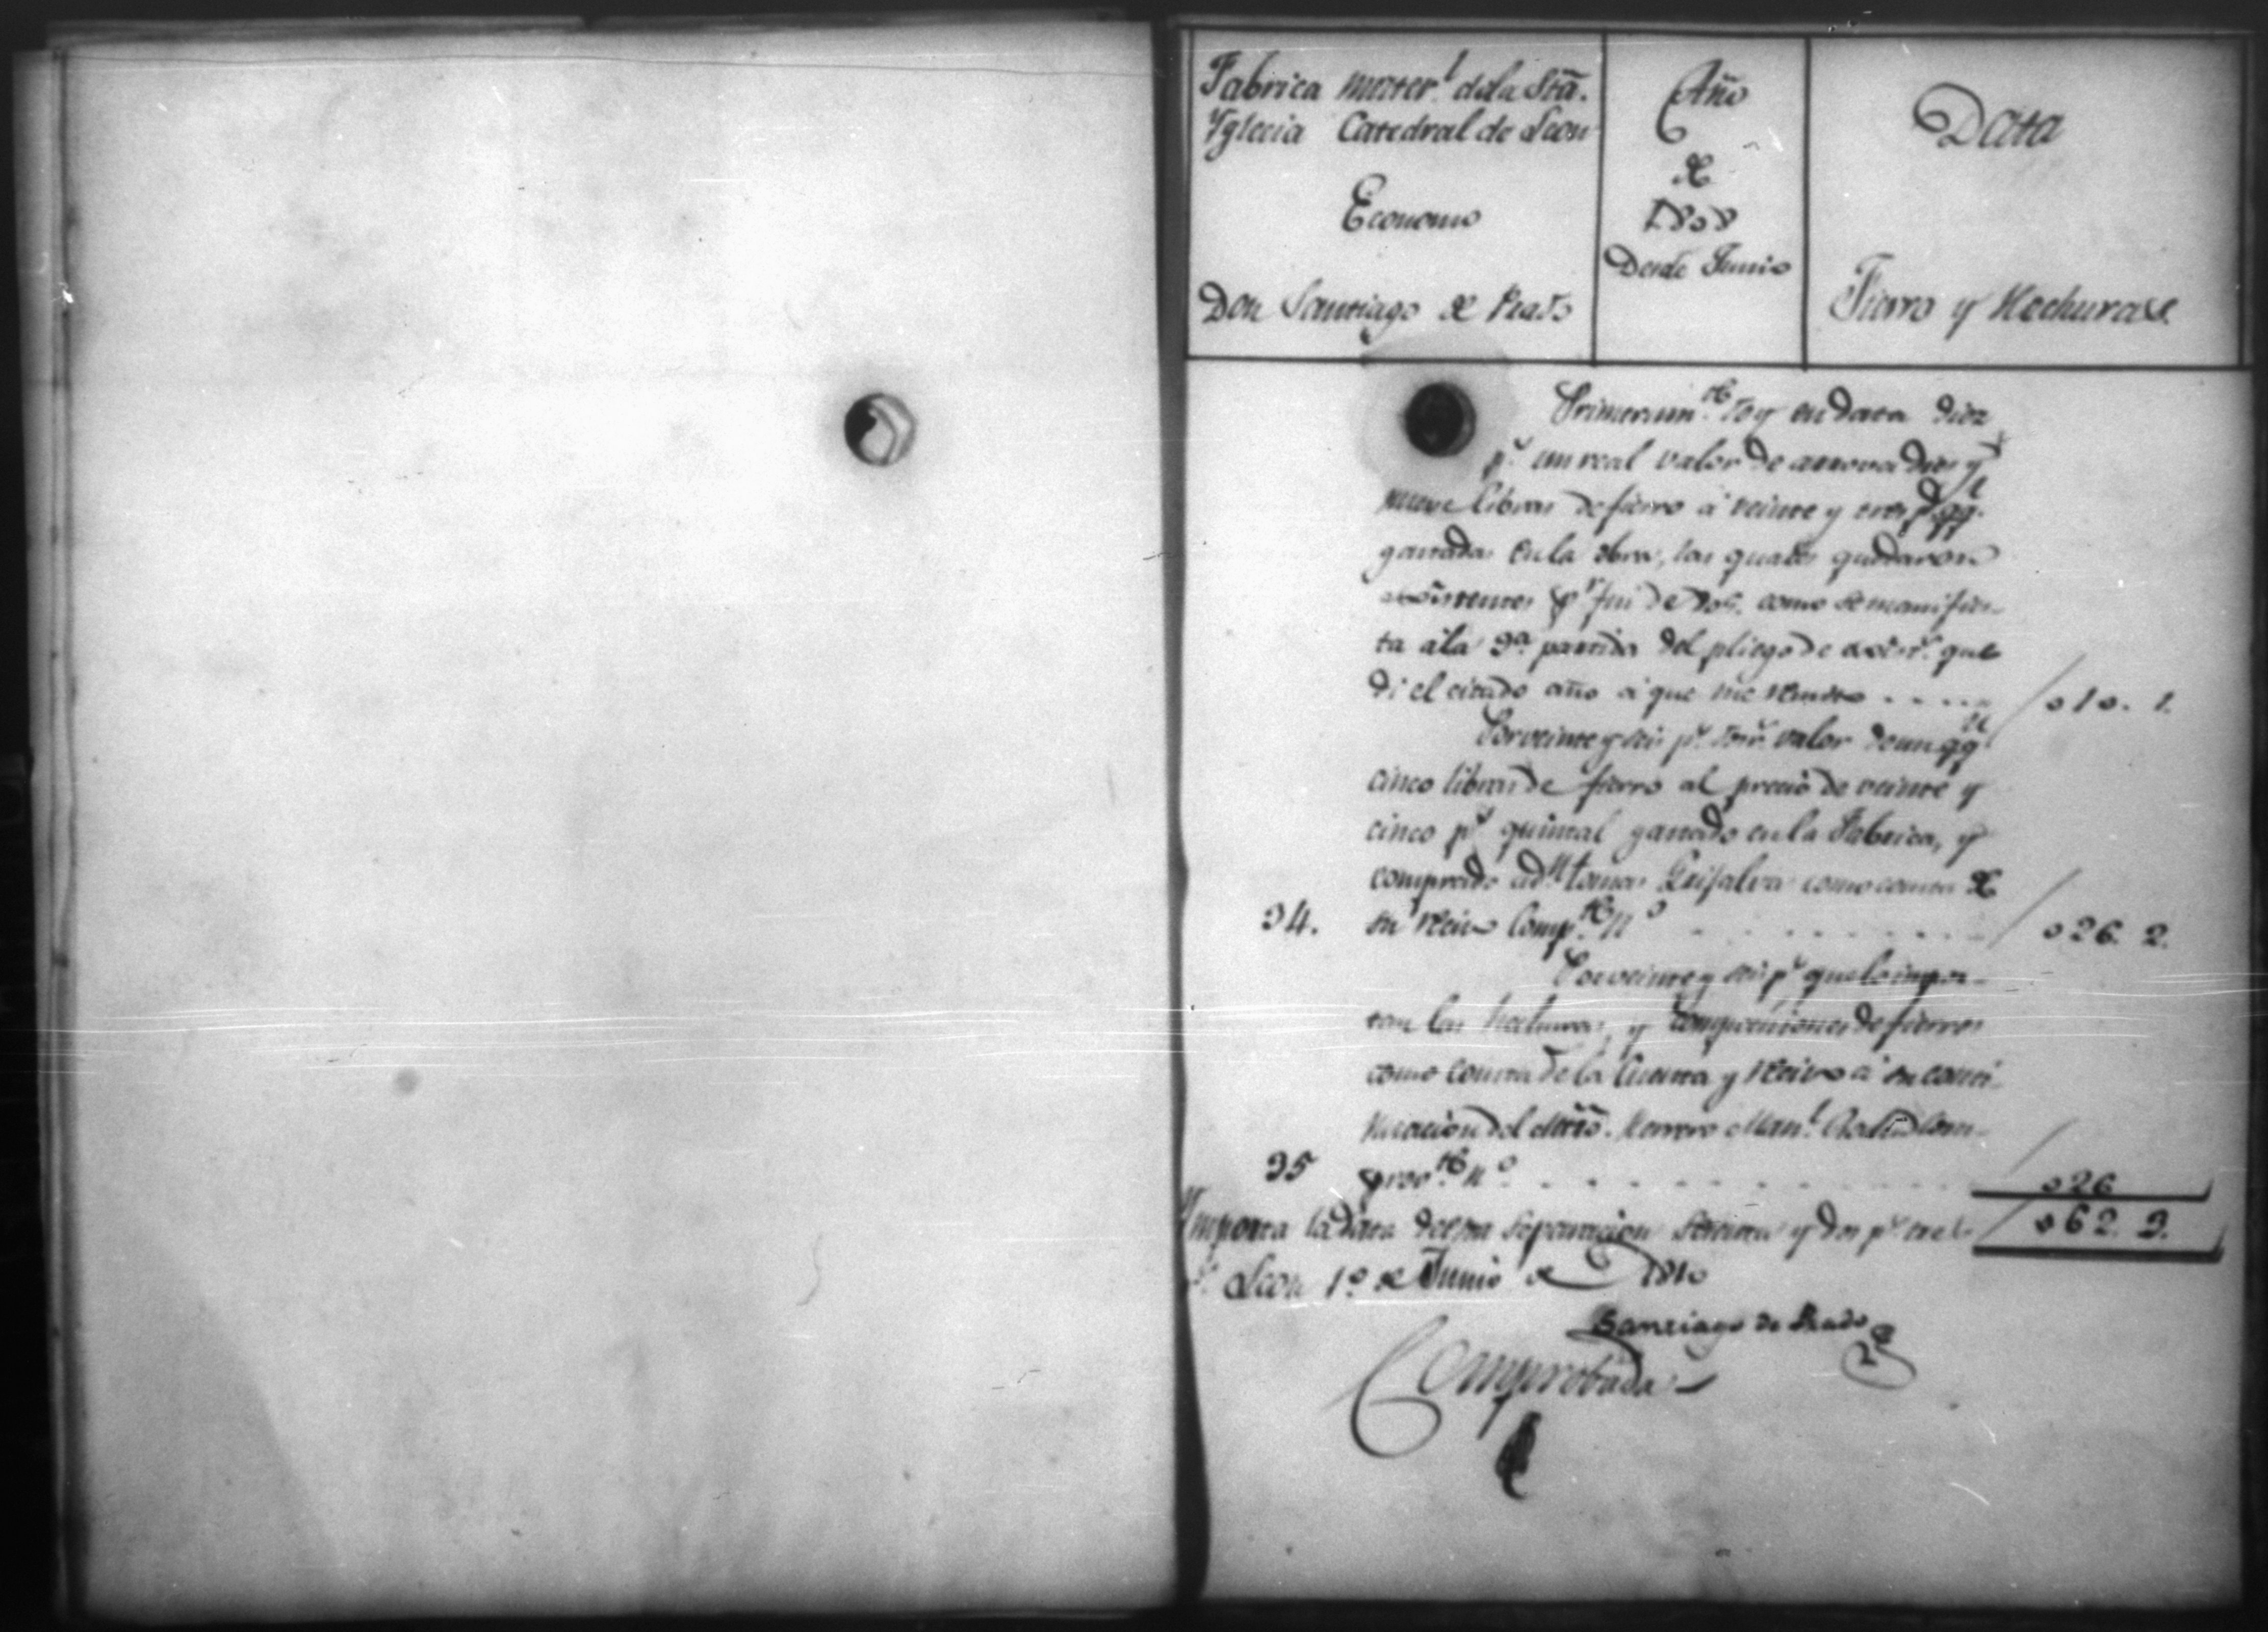 Fabrica mater.l dela Sta.
Yglecia Catedral de Leon
Economo
Don Santiago de Prado
Año
de
1808
Desde Junio
Data
Fierro y Hechuras.
Primeram.te Doy en data diez
p.s un real valor de arrova dies y
nueve libras de fierro á veinte y tres p.s qq.l
gastadas en la obra, las quales quedaron
existentes p.r fin de 807. como se manifies-
ta á la 3.a partida del pliego de exist.s que
di el citado año á que me remito . . . . . 010. 1.
Por veinte y seis p.s dos r.s valor de un qq.l
cinco libras de fierro al precio de veinte y
cinco p.s quintal gastado en la Fabrica, y
comprado a d.n Tomas Grijalva como consta de
34. su recivo Comp.te n.o . . . . . . . . 026. 2.
Por veinte y seis p.s que lo impor-
tan las hechuras, y composiciones de fierros
como consta de la Cuenta y recivo á su conti-
nuacion del Mtro. Herrero Man.l Com-
35 prov.te n.o . . . . . . . . . . 026
Ymporta la data desta separacion sesenta y dos p.s tres 062. 3.
r.s Leon 1.o de Junio de 1810
Santiago de Prado
Comprobada